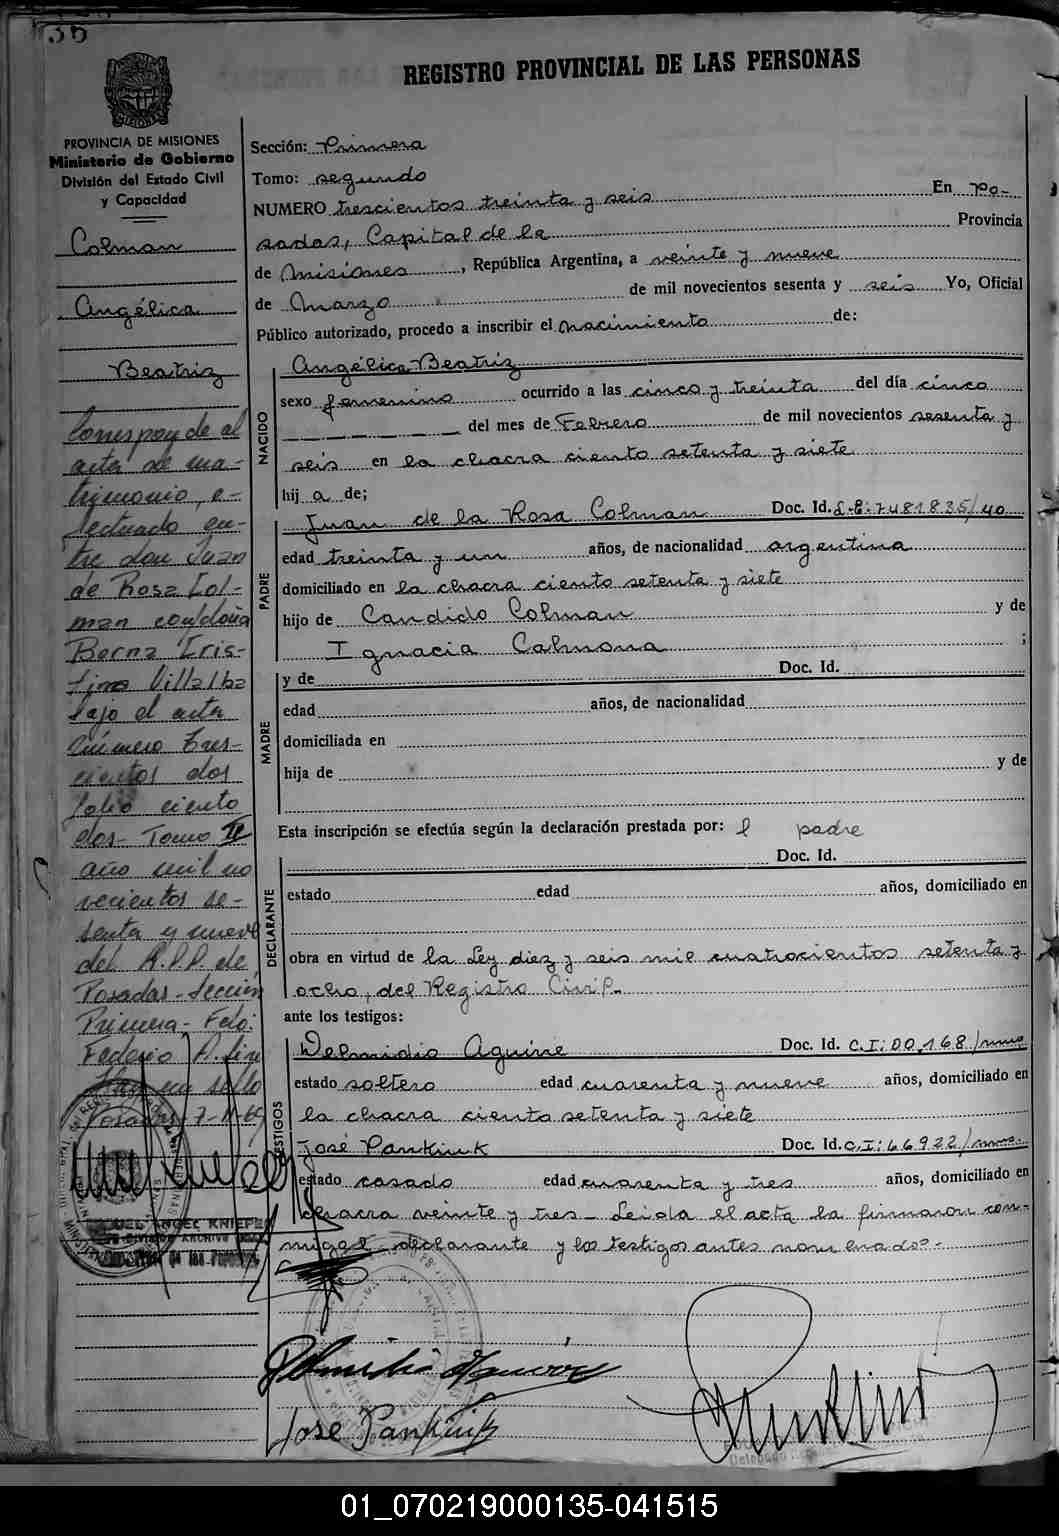 36
REGISTRO PROVINCIAL DE LAS PERSONAS
PROVINCIA DE MISIONES
Ministerio de Gobierno
División del Estado Civil
y Capacidad
Colman
Angélica
Beatriz
Corresponde al
acta de ma-
trimonio, e-
fectuado en-
tre don Juan
de Rosa Col-
man con doña
Berna Cris-
Villalba
bajo el acta
número tres-
cientos dos
folio ciento
dos - Tomo II
año mil no
vecientos se-
senta y nueve
del R.P.P. de
Posadas - Sección
Primera - Fdo:
Federico A.
Hay un sello
Posadas 7-11-69
ANGEL KNIEPE
DIVISION ARCHIVO
de las Personas
Sección: Primera
Tomo: segundo
NUMERO trescientos treinta y seis En Po-
sadas, Capital de la Provincia
de Misiones, República Argentina, a veinte y nueve
de Marzo de mil novecientos sesenta y seis Yo, Oficial
Público autorizado, procedo a inscribir el nacimiento de:
NACIDO
Angélica Beatriz
sexo femenino ocurrido a las cinco y treinta del día cinco
del mes de Febrero de mil novecientos sesenta y
seis en la chacra ciento setenta y siete
hij a de;
PADRE
Juan de la Rosa Colman Doc. Id. L.E: 7481835/40
edad treinta y un años, de nacionalidad argentina
domiciliado en la chacra ciento setenta y siete
hijo de Candido Colman y de
Ignacia Calmona ;
MADRE
y de Doc. Id.
edad años, de nacionalidad
domiciliada en
hija de y de
Esta inscripción se efectúa según la declaración prestada por: el padre
DECLARANTE
Doc. Id.
estado edad años, domiciliado en
obra en virtud de la Ley diez y seis mil cuatrocientos setenta y
ocho, del Registro Civil.
ante los testigos:
TESTIGOS
Delmidio Aguirre Doc. Id. C.I: 00.168/mnes
estado soltero edad cuarenta y nueve años, domiciliado en
la chacra ciento setenta y siete
José Pankiuk Doc. Id. C.I: 66922/mnes.
estado casado edad cuarenta y tres años, domiciliado en
chacra veinte y tres - Leida el acta la firmaron con-
migo el declarante y los testigos antes nombrados.
Delmidio Aguirre
José Pankiuk
01_070219000135-041515